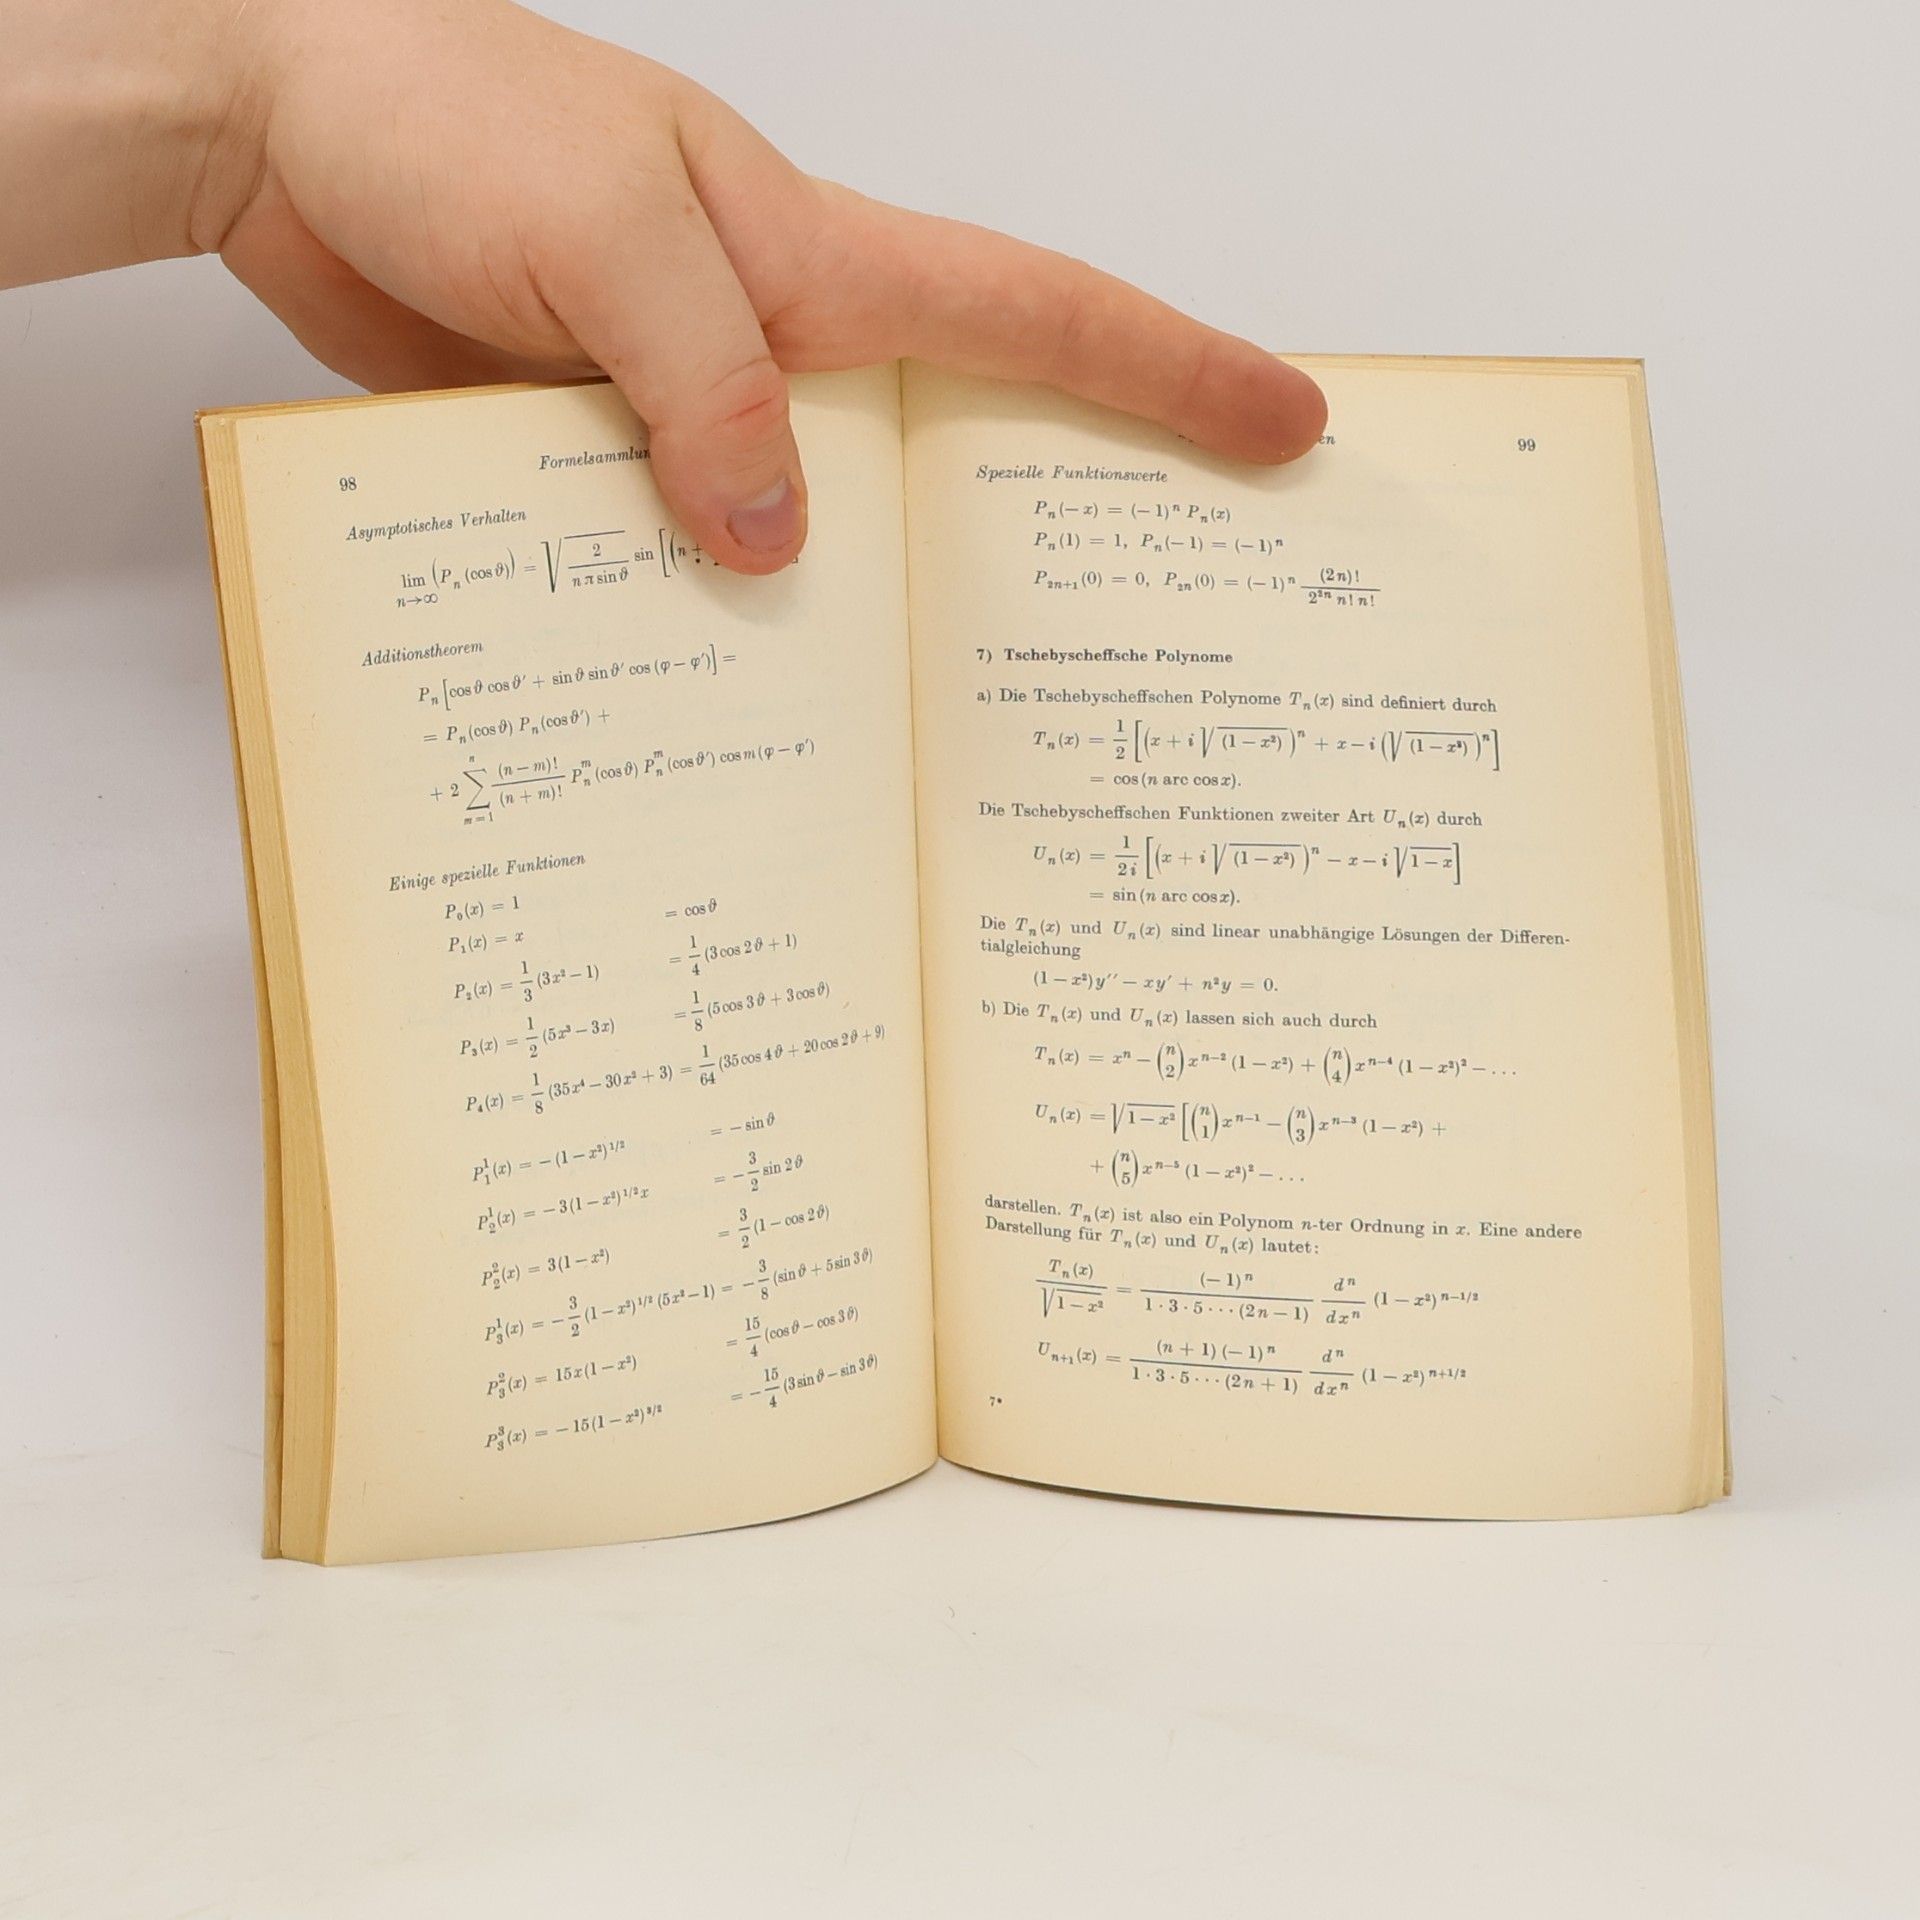 98
Asymptotisches Verhalten
lim n→∞ (P_n (cos ϑ)) = √(2 / (n π sin ϑ)) sin [(n +
Additionstheorem
P_n [cos ϑ cos ϑ′ + sin ϑ sin ϑ′ cos (φ − φ′)] =
= P_n (cos ϑ) P_n (cos ϑ′) +
+ 2 ∑_{m=1}^{n} (n − m)! / (n + m)! P_n^m (cos ϑ) P_n^m (cos ϑ′) cos m (φ − φ′)
Einige spezielle Funktionen
P_0(x) = 1
P_1(x) = x = cos ϑ
P_2(x) = 1/3 (3x² − 1) = 1/4 (3 cos 2ϑ + 1)
P_3(x) = 1/2 (5x³ − 3x) = 1/8 (5 cos 3ϑ + 3 cos ϑ)
P_4(x) = 1/8 (35x⁴ − 30x² + 3) = 1/64 (35 cos 4ϑ + 20 cos 2ϑ + 9)
P_1^1(x) = − (1 − x²)^{1/2} = − sin ϑ
P_2^1(x) = − 3 (1 − x²)^{1/2} x = − 3/2 sin 2ϑ
P_2^2(x) = 3 (1 − x²) = 3/2 (1 − cos 2ϑ)
P_3^1(x) = − 3/2 (1 − x²)^{1/2} (5x² − 1) = − 3/8 (sin ϑ + 5 sin 3ϑ)
P_3^2(x) = 15x (1 − x²) = 15/4 (cos ϑ − cos 3ϑ)
P_3^3(x) = − 15 (1 − x²)^{3/2} = − 15/4 (3 sin ϑ − sin 3ϑ)
99
Spezielle Funktionswerte
P_n (− x) = (− 1)^n P_n (x)
P_n (1) = 1, P_n (− 1) = (− 1)^n
P_{2n+1} (0) = 0, P_{2n} (0) = (− 1)^n (2n)! / (2^{2n} n! n!)
7) Tschebyscheffsche Polynome
a) Die Tschebyscheffschen Polynome T_n (x) sind definiert durch
T_n (x) = 1/2 [(x + i √(1 − x²))^n + x − i (√(1 − x²))^n]
= cos (n arc cos x).
Die Tschebyscheffschen Funktionen zweiter Art U_n (x) durch
U_n (x) = 1/(2i) [(x + i √(1 − x²))^n − x − i √(1 − x)]
= sin (n arc cos x).
Die T_n (x) und U_n (x) sind linear unabhängige Lösungen der Differen-
tialgleichung
(1 − x²) y′′ − xy′ + n²y = 0.
b) Die T_n (x) und U_n (x) lassen sich auch durch
T_n (x) = x^n − (n 2) x^{n−2} (1 − x²) + (n 4) x^{n−4} (1 − x²)² − . . .
U_n (x) = √(1 − x²) [(n 1) x^{n−1} − (n 3) x^{n−3} (1 − x²) +
+ (n 5) x^{n−5} (1 − x²)² − . . .
darstellen. T_n (x) ist also ein Polynom n-ter Ordnung in x. Eine andere
Darstellung für T_n (x) und U_n (x) lautet:
T_n (x) / √(1 − x²) = (− 1)^n / (1 · 3 · 5 · · · (2n − 1)) d^n/dx^n (1 − x²)^{n−1/2}
U_{n+1} (x) = (n + 1) (− 1)^n / (1 · 3 · 5 · · · (2n + 1)) d^n/dx^n (1 − x²)^{n+1/2}
7*